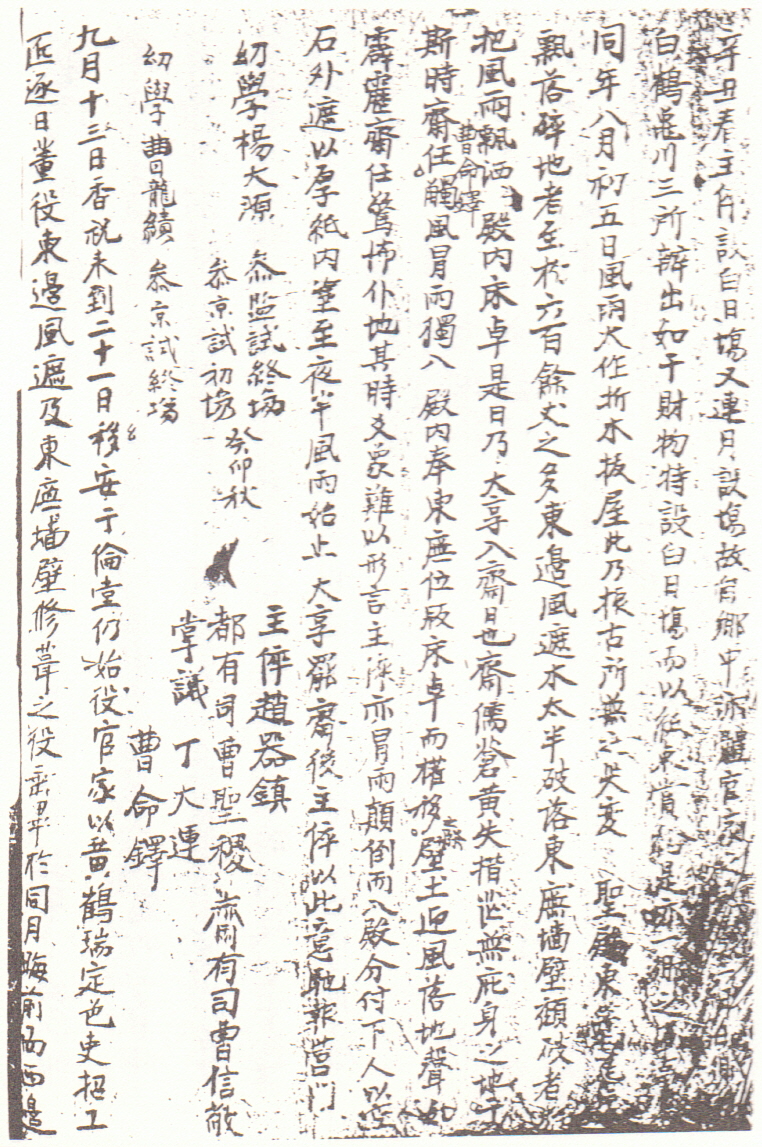 辛丑春主倅設白日塲又連月設塲故自鄕中
白鶴黽川三所辦出如干財物特設白日塲而以紙束賞
同年八月初五日風雨大作折木拔屋此乃振古所無之災変 聖殿東
飄落碎地者至於六百餘丈之多東邊風遮木太半破落東廡墻壁頹破者
把風雨飄洒殿內床卓是日乃 大享入齋日也齋儒蒼黃失措茫無庇身之地于
曺命鐸
斯時齋任觸風冒雨獨入 殿內奉東廡位版床卓而權移壁土迎風落地聲如
霹靂齋任驚怖仆地其時爻象難以形言主倅亦冒雨顛倒而入殿分付下人以空
石外遮以厚紙內塗至夜半風雨始止 大享罷齋後主倅以此意馳報營門
幼學楊大源 參監試終塲 主倅趙器鎭
參京試初塲 癸卯秋 都有司曺聖稷 齋有司曺信敬
幼學曺龍績 參京試終塲 掌議 丁大運
曺命鐸
九月十三日香祝來到二十一日移安于倫堂仍始役官家以黃鶴瑞定色吏招工
匠逐日董役東邊風遮及東廡墻壁修葺之役畢於同月晦前而西邊